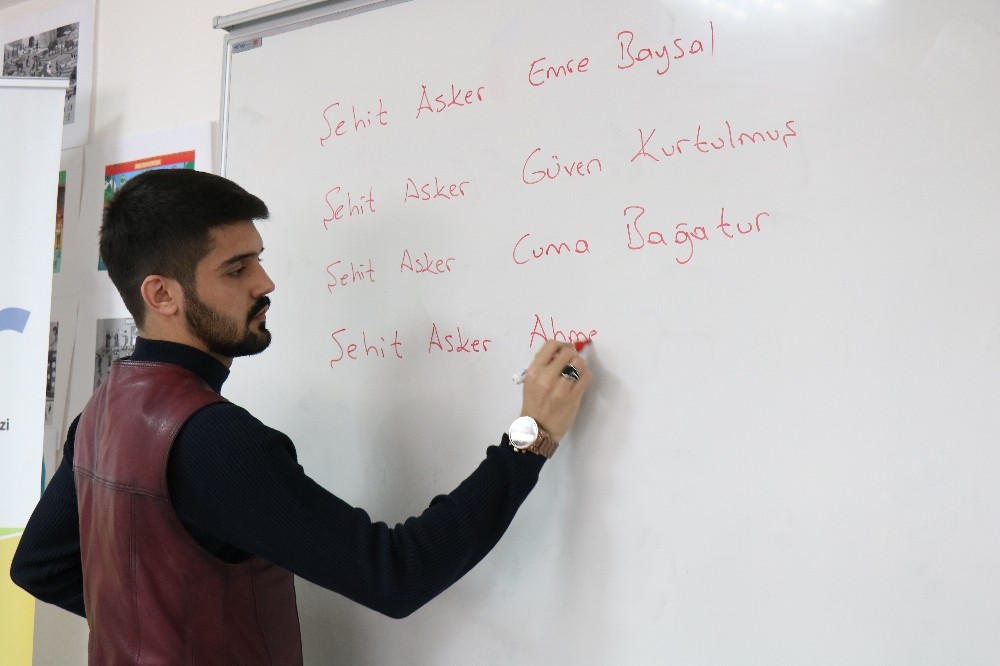 Şehit Asker Emre Baysal
Şehit Asker Güven Kurtulmuş
Şehit Asker Cuma Bağatur
Şehit Asker Ahme
zi